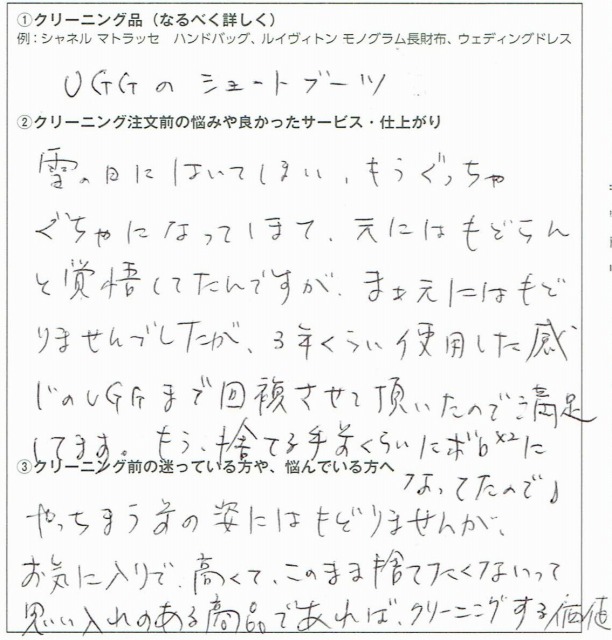 ①クリーニング品（なるべく詳しく）
例：シャネル マトラッセ　ハンドバッグ、ルイヴィトン モノグラム長財布、ウェディングドレス
UGGの ショートブーツ
②クリーニング注文前の悩みや良かったサービス・仕上がり
雪の日にはいてしまい、もうぐっちゃ
ぐちゃになってしまて、元にはもどらん
と覚悟してたんですが、まぁ元にはもど
りませんでしたが、3年くらい使用した感
じのUGGまで回複させて頂いたので満足
してます。もう、捨てる手前くらいにボロ×2に
なってたので♪
③クリーニング前の迷っている方や、悩んでいる方へ
やっちまう前の姿にはもどりませんが、
お気に入りで、高くて、このまま捨てたくないって
思い入れのある商品であれば、クリーニングする価値